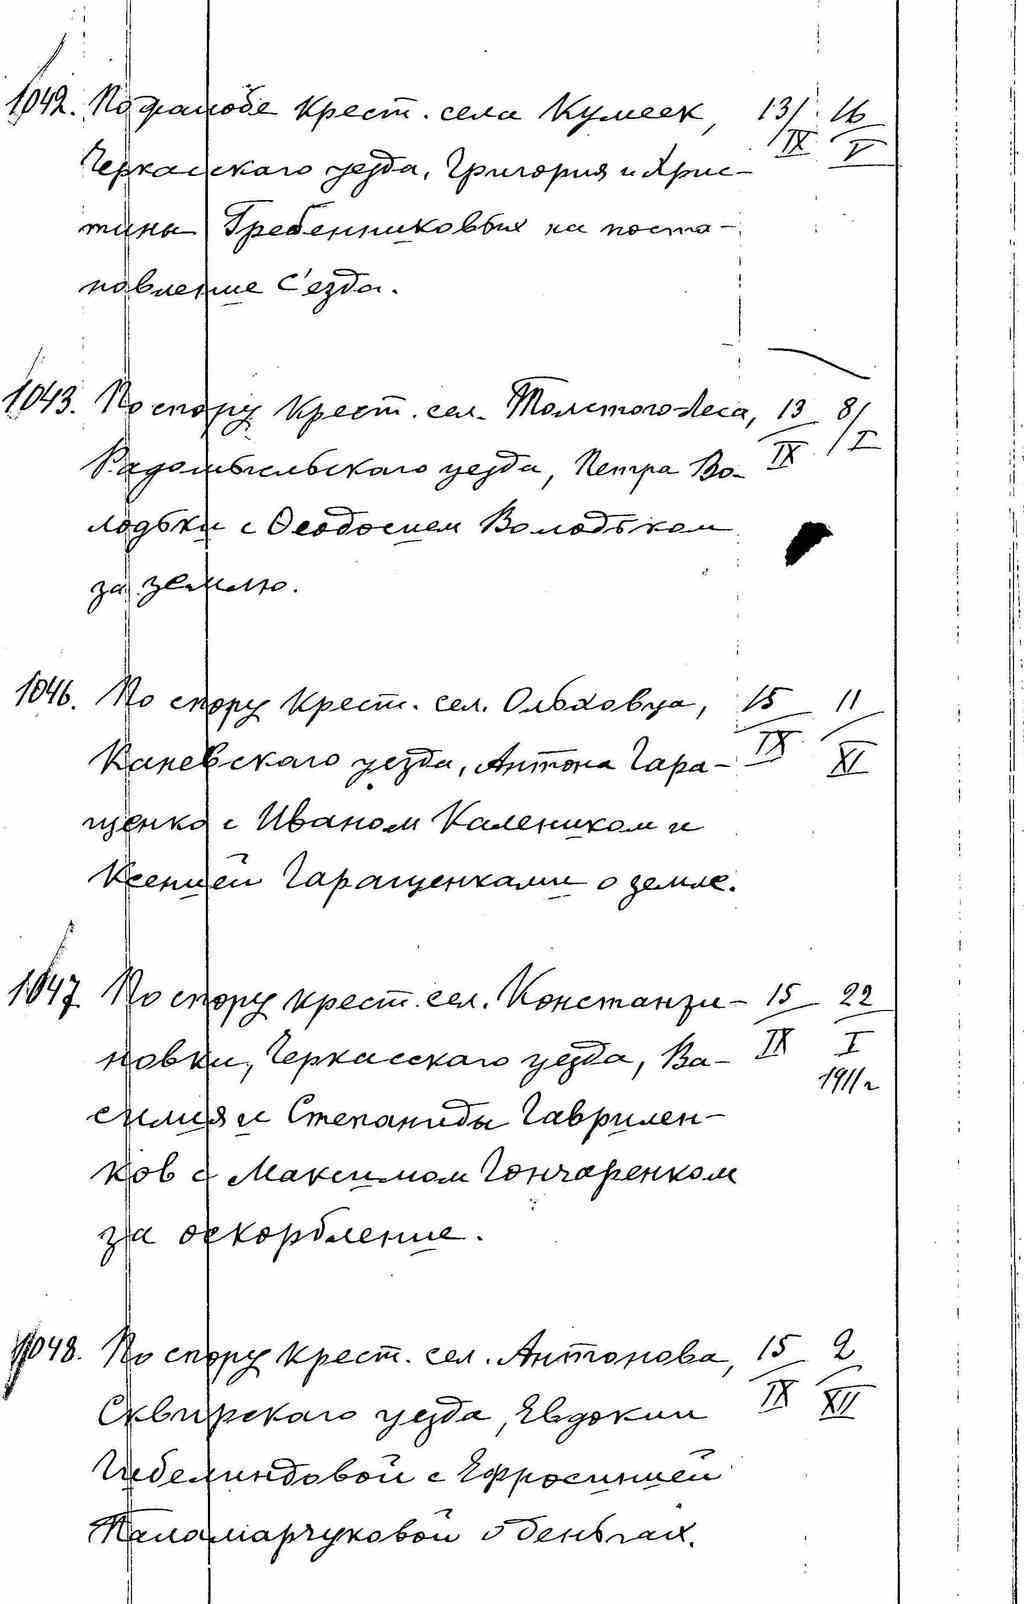 1042. По жалобе крест. села Кумеек, 13/IX 16/V
Черкасскаго уезда, Григория и Хрис-
тины Гребенниковых на поста-
новление С'езда.
1043. По спору крест. сел. Толстого-Леса, 13/IX 8/I
Радомысльскаго уезда, Петра Во-
лодьки с Феодосием Володьком
за землю.
1046. По спору крест. сел. Ольховца, 15/IX 11/XI
Каневскаго уезда, Антона Гара-
щенко с Иваном Калеником и
Ксенией Гаращенками о земле.
1047. По спору крест. сел. Констанзи- 15/IX 22/I
1911 г
новки, Черкасскаго уезда, Ва-
силия и Степаниды Гаврилен-
ков с Максимом Гончаренком
за оскорбление.
1048. По спору крест. сел. Антонова, 15/IX 2/XII
Сквирскаго уезда, Евдокии
Гибелиндовой с Ефросинией
Паламарчуковой о деньгах.